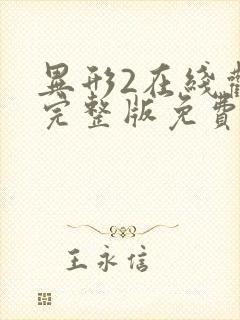 異形2在綫觀
完整版免費
王永信